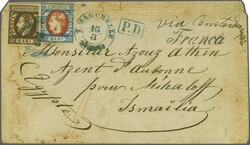 P.D.
via Constan
Franca
Monsieur Azouz Athin
Agent d'aubonne
pour Mihaloff
Ismaïlia
Egypte